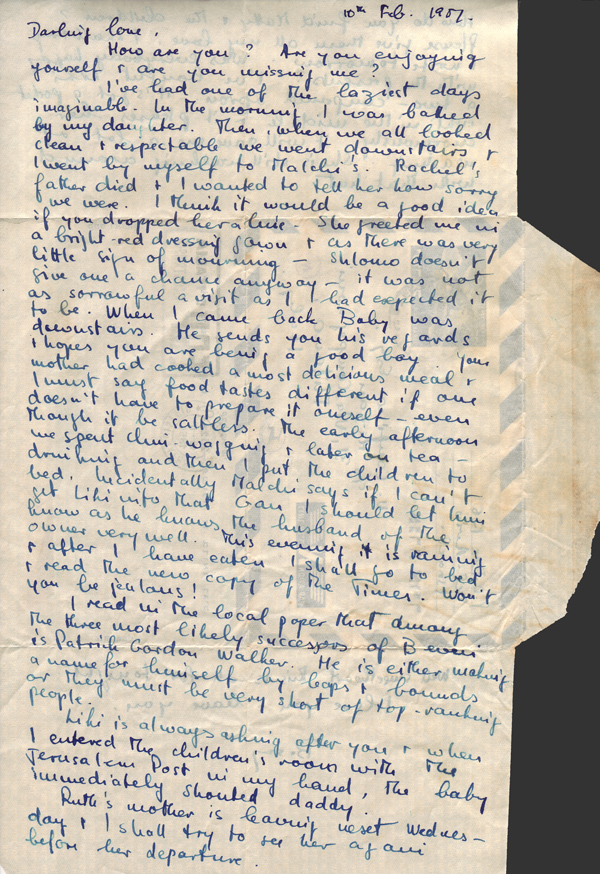 10th Feb. 1951.
Darling love,
How are you? Are you enjoying
yourself & are you missing me?
I've had one of the laziest days
imaginable. In the morning I was bathed
by my daughter. Then, when we all looked
clean & respectable we went downstairs &
I went by myself to Malchi's. Rachel's
father died & I wanted to tell her how sorry
we were. I think it would be a good idea
if you dropped her a line. She greeted me in
a bright-red dressing gown & as there was very
little sign of mourning – Shlomo doesn't
give one a chance anyway – it was not
as sorrowful a visit as I had expected it
to be. When I came back Baby was
downstairs. He sends you his regards
& hopes you are being a good boy. Your
mother had cooked a most delicious meal &
I must say food tastes different if one
doesn't have to prepare it oneself – even
though it be saltless. The early afternoon
we spent chin-wagging & later on tea –
drinking and then I put the children to
bed. Incidentally Malchi says if I can't
get Liki into that Gan I should let him
know as he knows the husband of the
owner very well. This evening it is raining
& after I have eaten I shall go to bed
& read the new copy of the Times. Won't
you be jealous!
I read in the local paper that among
the three most likely successors of Bevin
is Patrick Gordon Walker. He is either making
a name for himself by leaps & bounds
or they must be very short of top-ranking
people.
Liki is always asking after you & when
I entered the children's room with the
Jerusalem Post in my hand, the baby
immediately shouted daddy.
Ruth's mother is leaving next Wednes–
day & I shall try to see her again
before her departure.